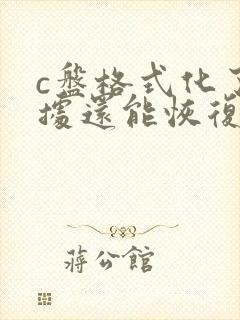 c盤格式化
據還能恢復
蔣公館